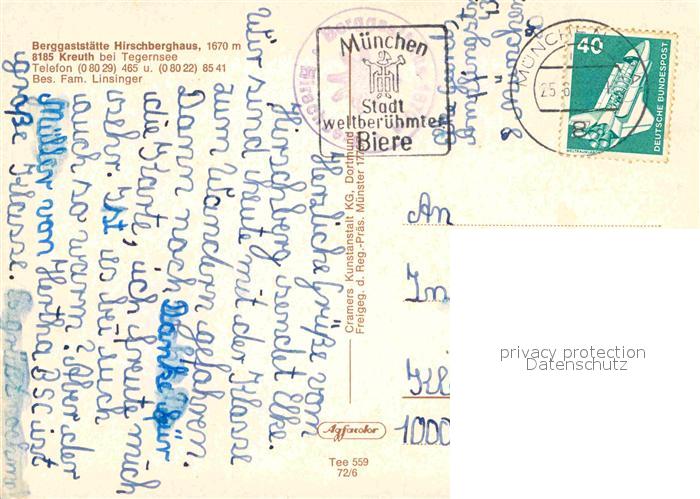 Berggaststätte Hirschberghaus, 1670 m
8185 Kreuth bei Tegernsee
Telefon (0 80 29) 465 u. (0 80 22) 85 41
Bes. Fam. Linsinger
München
Stadt
weltberühmter
Biere
MÜNCHEN
25.6
8
40
DEUTSCHE BUNDESPOST
Herzliche Grüße vom
Hirschberg sendet Elke.
Wir sind heute mit der Klasse
zum Wandern gefahren.
Dann noch Danke für
die Karte, ich freute mich
sehr. Ist es bei euch
auch so warm? Aber der
Müller von Hertha BSC ist
große Klasse.
8 München
Cramers Kunstanstalt KG, Dortmund
Freigeg. d. Reg.-Präs. Münster
Agfacolor
Tee 559
72/6
An
1000
privacy protection
Datenschutz